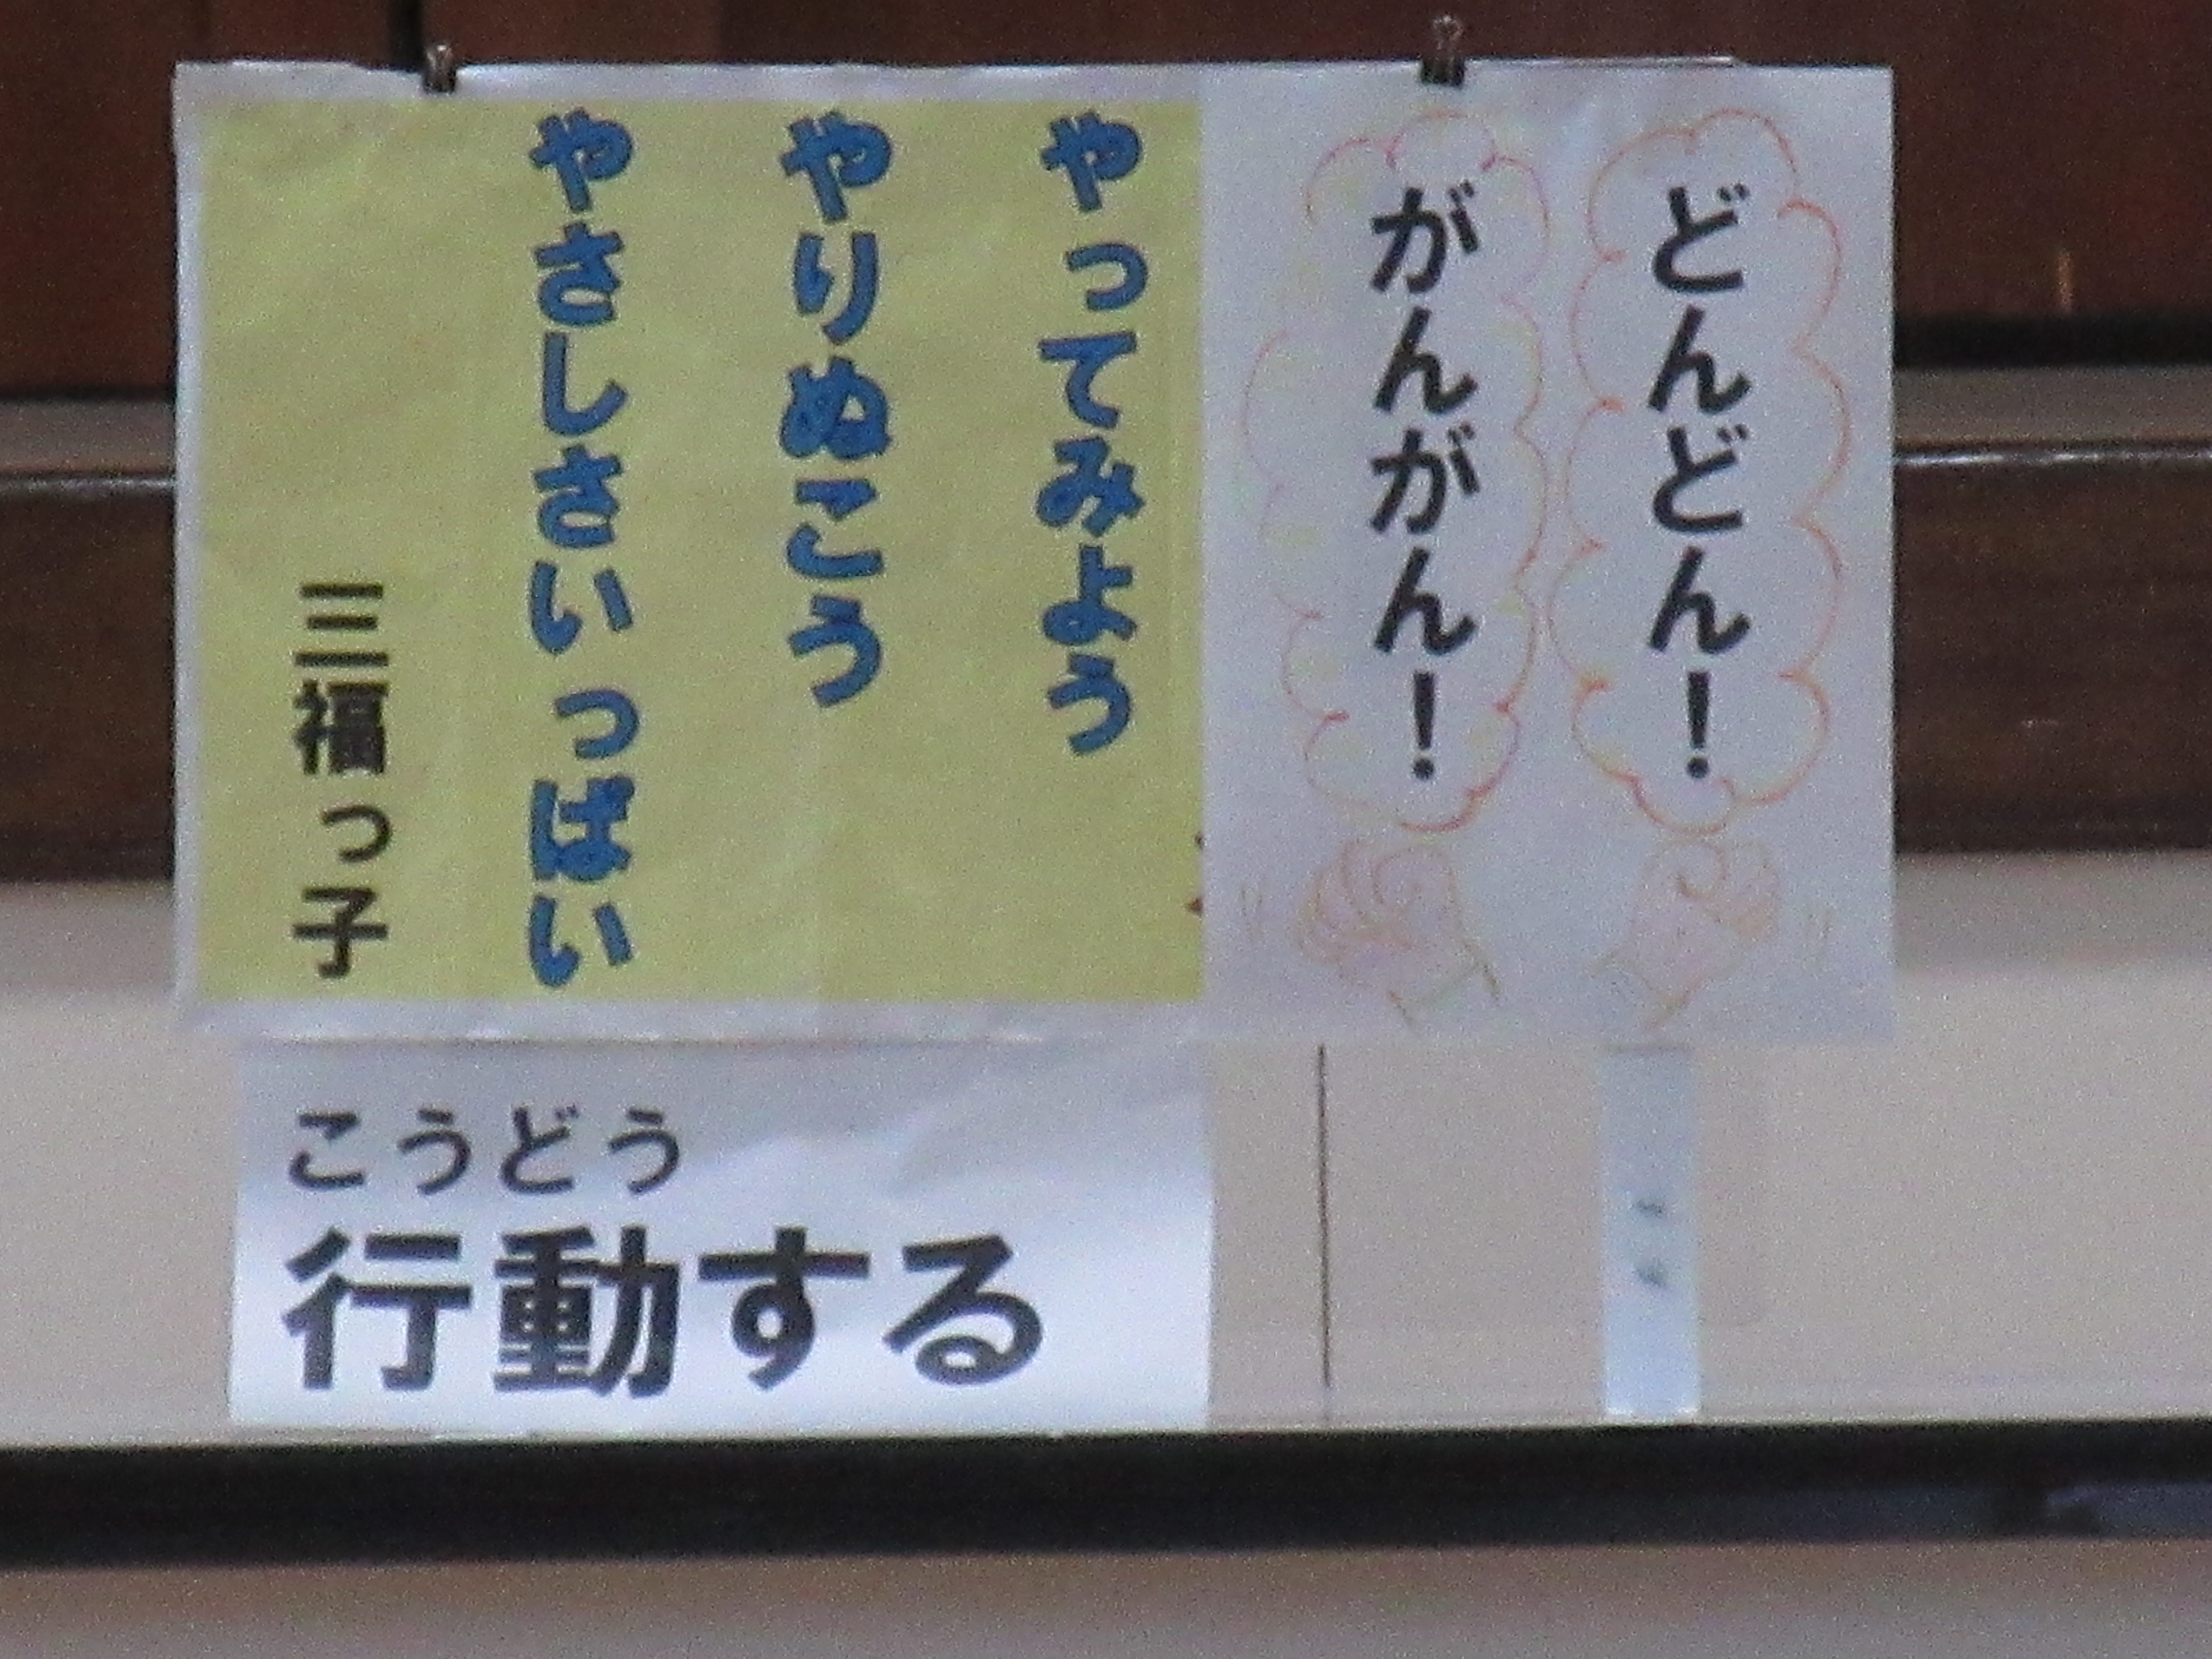 どんどん！
がんがん！
やってみよう
やりぬこう
やさしさいっぱい
三福っ子
こうどう
行動する